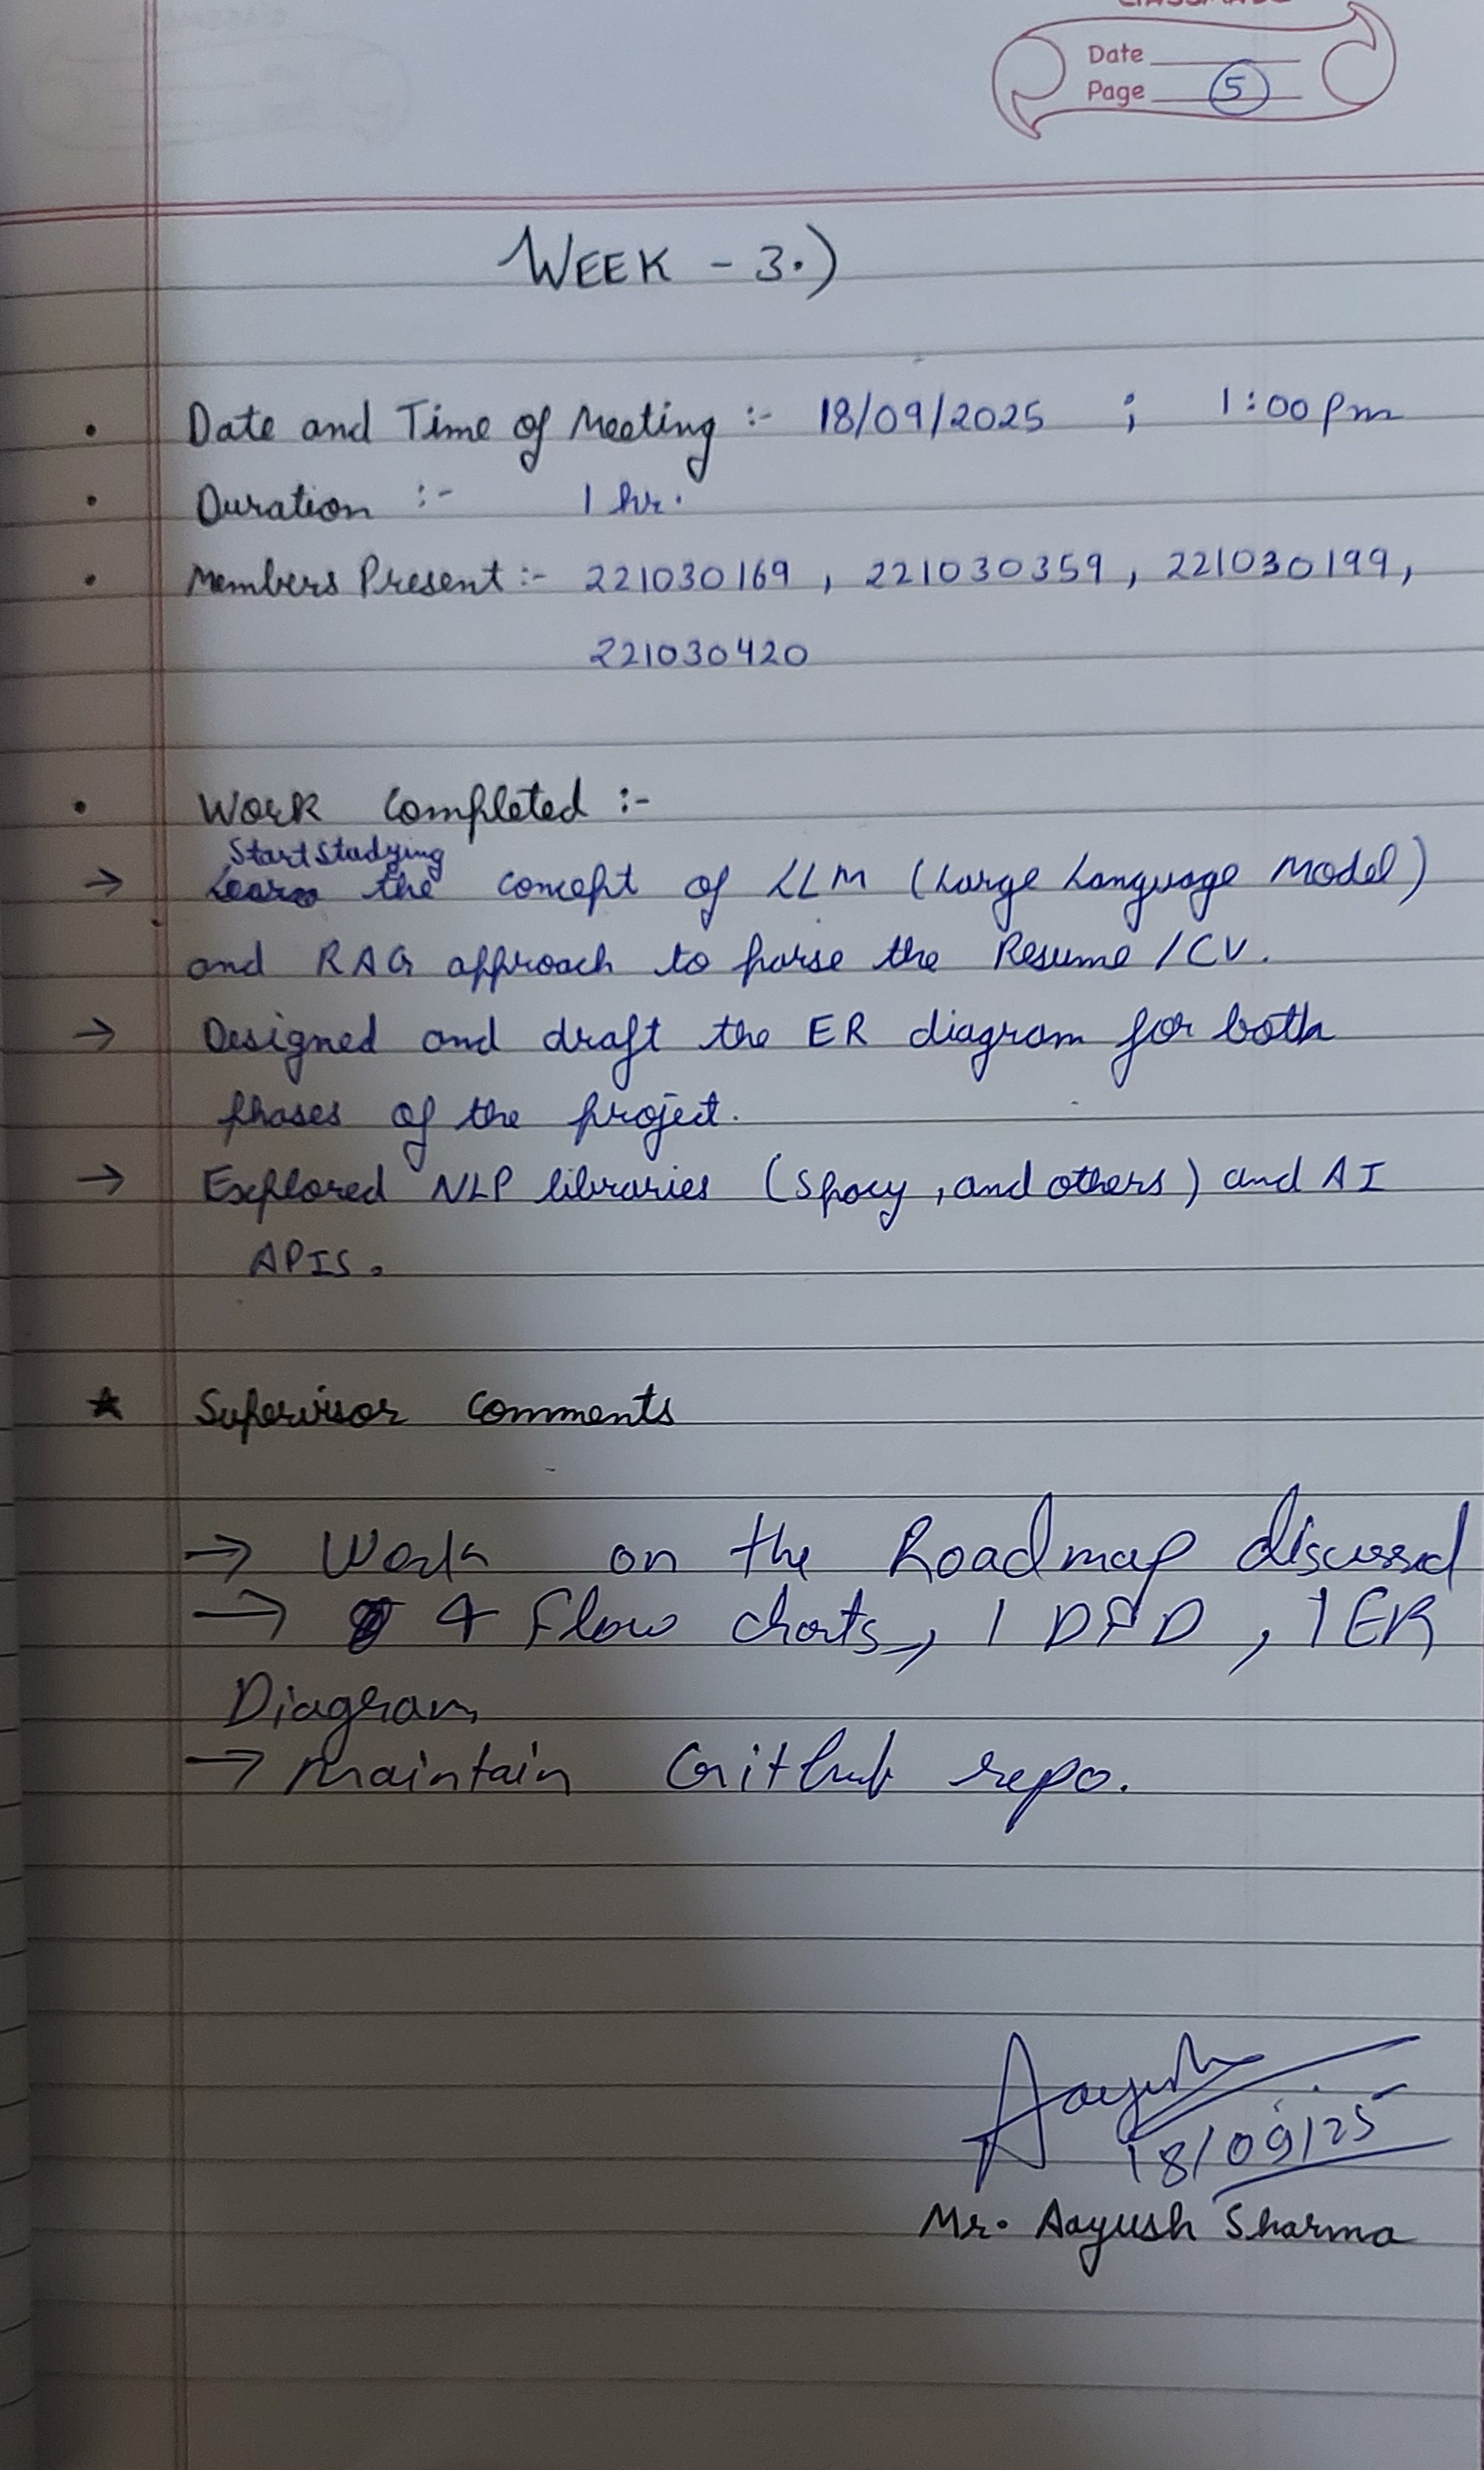 Date
Page 5
WEEK - 3.)
• Date and Time of Meeting :- 18/09/2025 ; 1:00 pm
• Duration :- 1 hr.
• Members Present :- 221030169 , 221030359 , 221030199 ,
221030420
• Work Completed :-
Start Studying
→ the concept of LLM (Large Language Model)
and RAG approach to parse the Resume / CV.
→ Designed and draft the ER diagram for both
phases of the project.
→ Explored NLP libraries (Spacy , and others) and AI
APIS.
★ Supervisor Comments
→ Work on the Roadmap discussed
→ 4 Flow charts, 1 DFD , 1 ER
Diagram
→ Maintain GitHub repo.
Aayush
18/09/25
Mr. Aayush Sharma